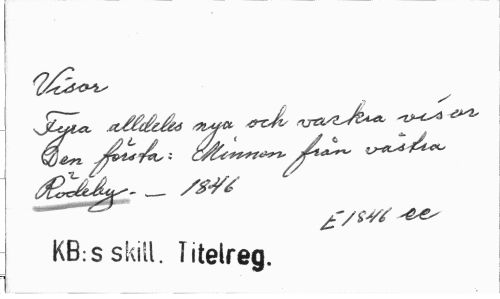 Visor
Fyra alldeles nya och vackra visor
Den första: Minnen från västra
Rödeby. — 1846
E 1846 ee
KB:s skill. Titelreg.